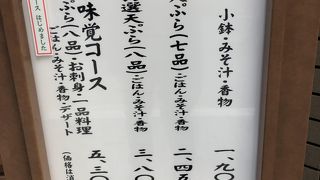 小鉢・みそ汁・香物
一、九〇
ぷら(七品)ごはん・みそ汁・香物
二、四五
選天ぷら(八品)ごはん・みそ汁・香物
三、八〇
味覚コース
ぷら(八品)・お刺身・一品料理
ごはん・みそ汁・香物・デザート
五、三〇
(価格は消
ース はじめました